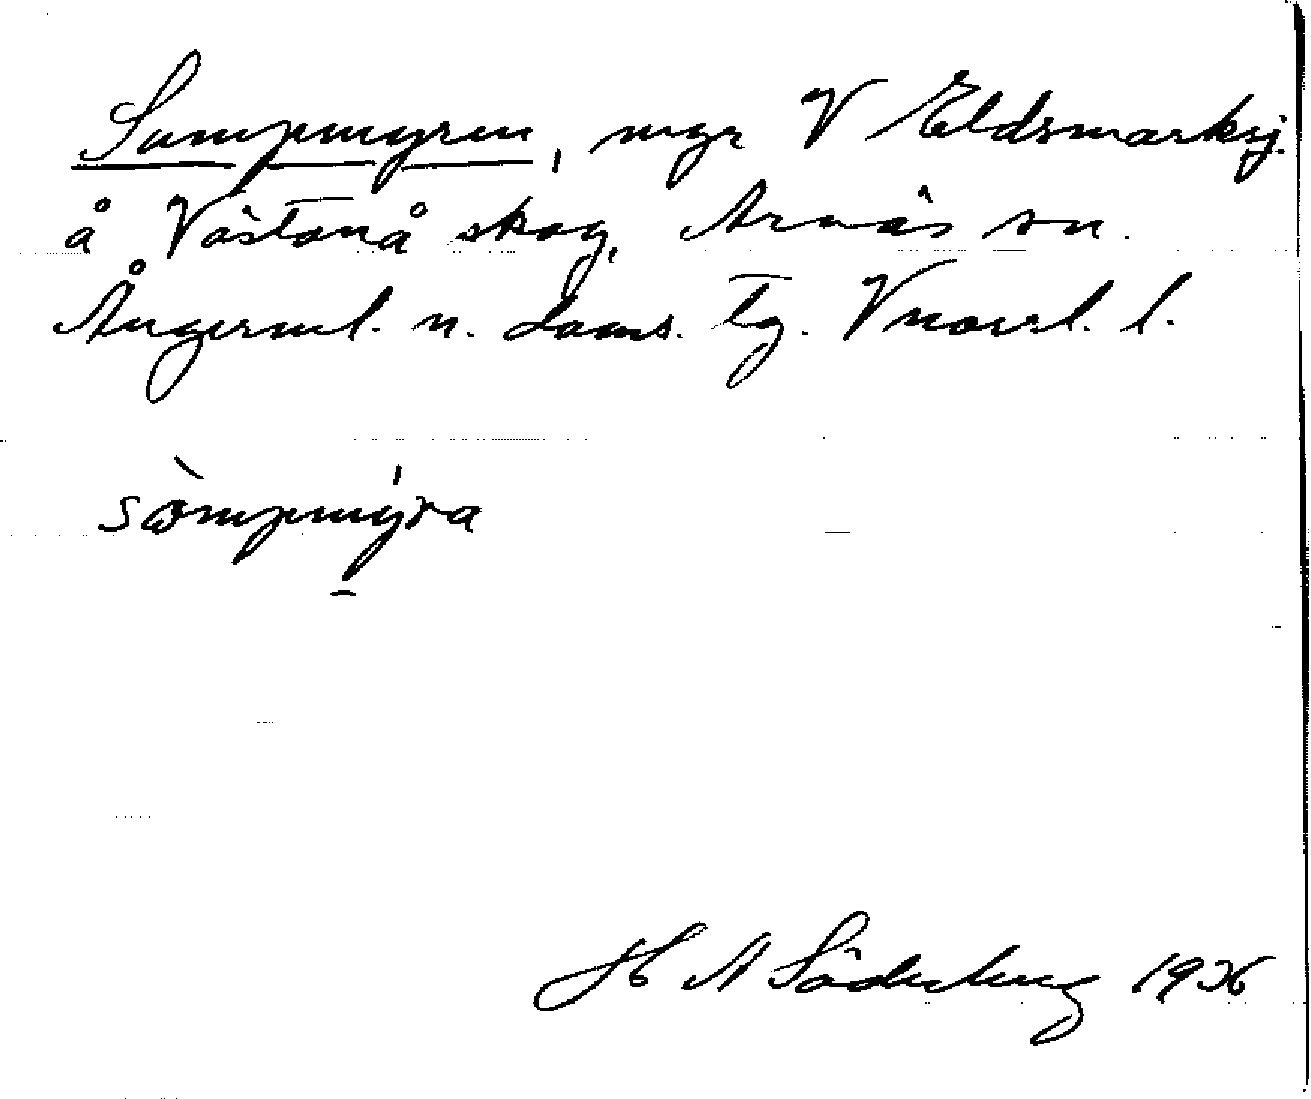 Sumpmyren, myr V Eldsmarksj.
å Västanå skog, Arnäs sn.
Ångerml. n. doms. tg. Vnorrl. l.
sòmpmýra
H A Söderberg 1936